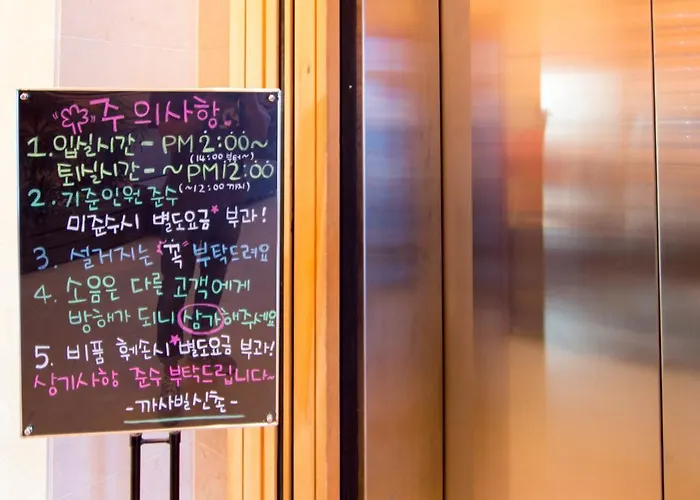 "주의사항"
1. 입실시간 - PM 2:00~
(14:00부터~)
퇴실시간 - ~PM 12:00
(~12:00 까지)
2. 기준인원 준수
미준수시 별도요금* 부과!
3. 설거지는 "꼭" 부탁드려요
4. 소음은 다른 고객에게
방해가 되니 삼가해주세요
5. 비품 훼손시 *별도요금 부과!
상기사항 준수 부탁드립니다~
- 까사빌신촌 -